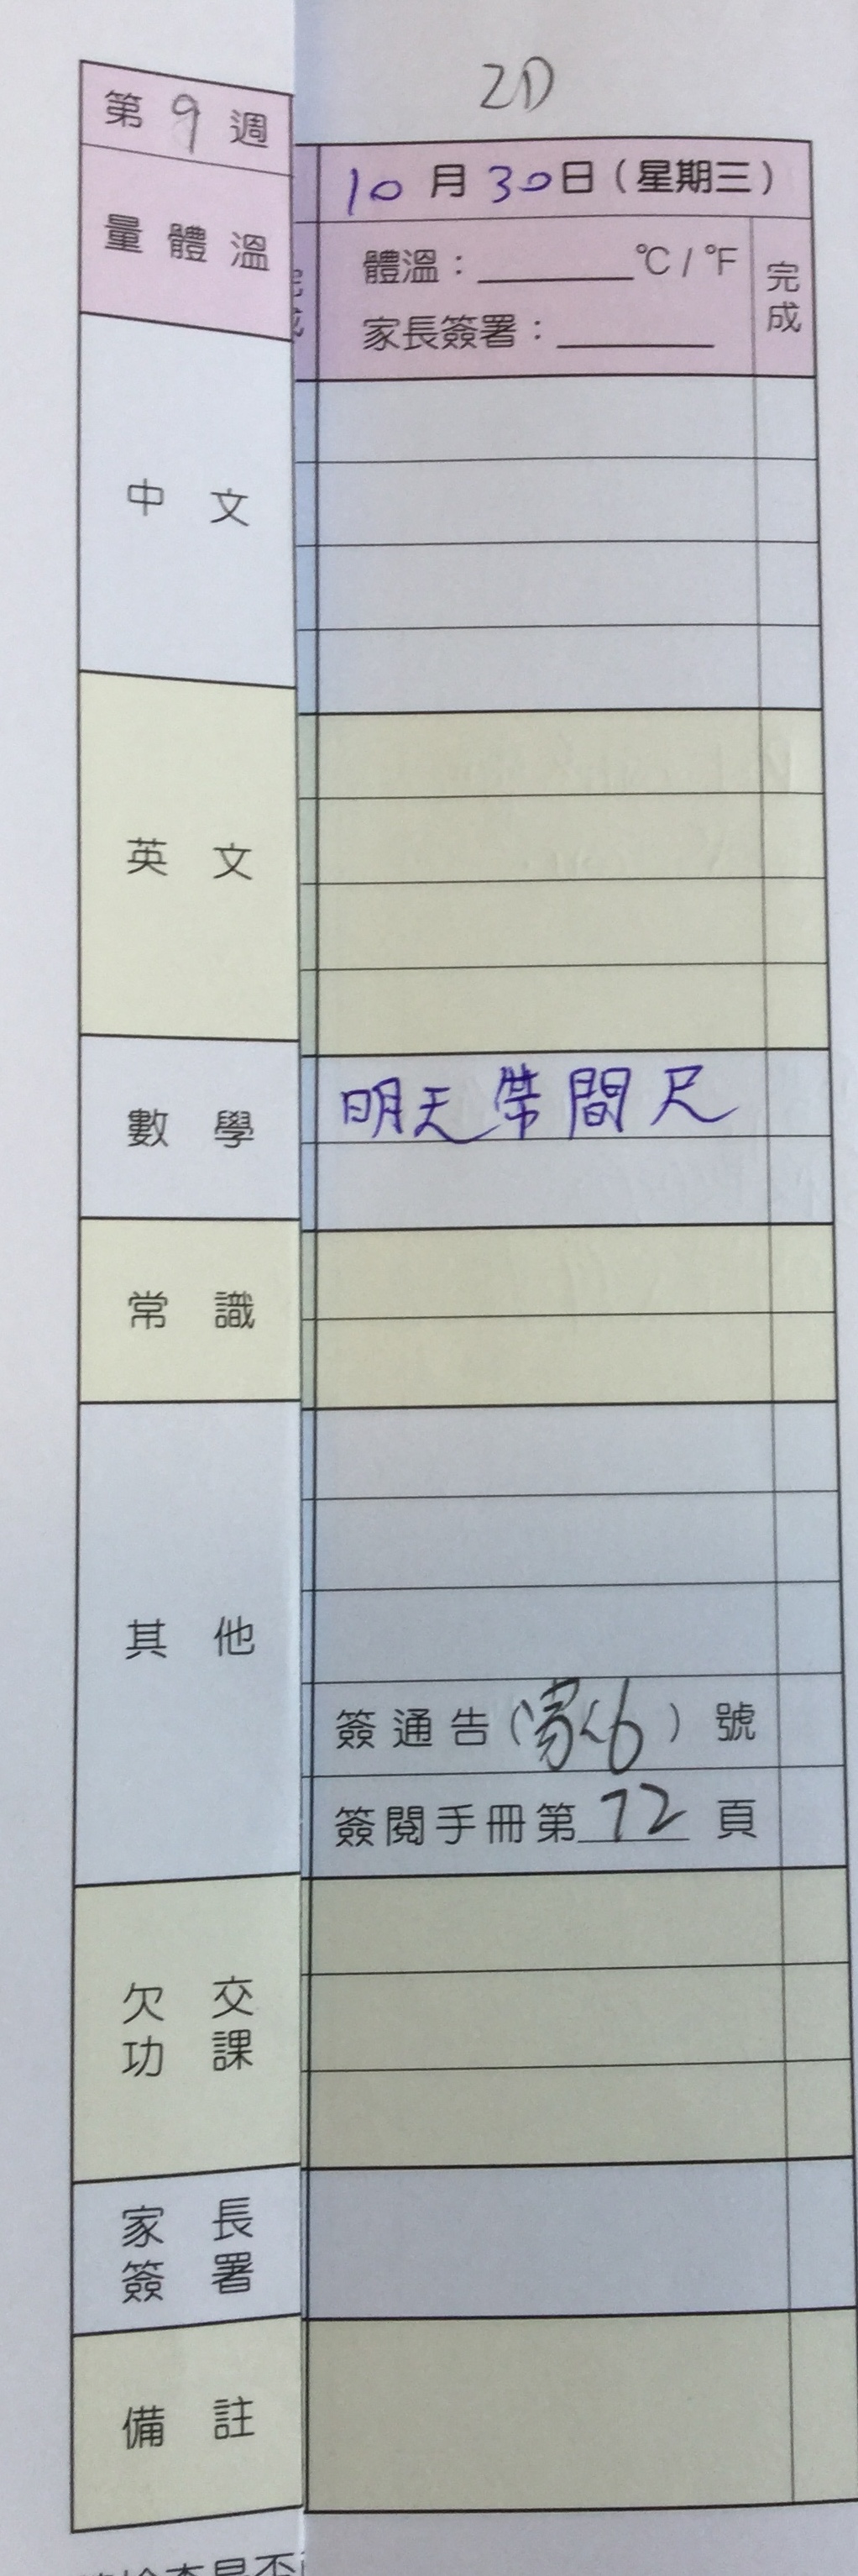 2D
第 9 週
10 月 30 日（星期三）
量 體 溫
體溫：______℃ / ℉
完成
家長簽署：______
中 文
英 文
數 學
明天帶間尺
常 識
其 他
簽通告( ) 號
簽閱手冊第 72 頁
欠 交
功 課
家 長
簽 署
備 註